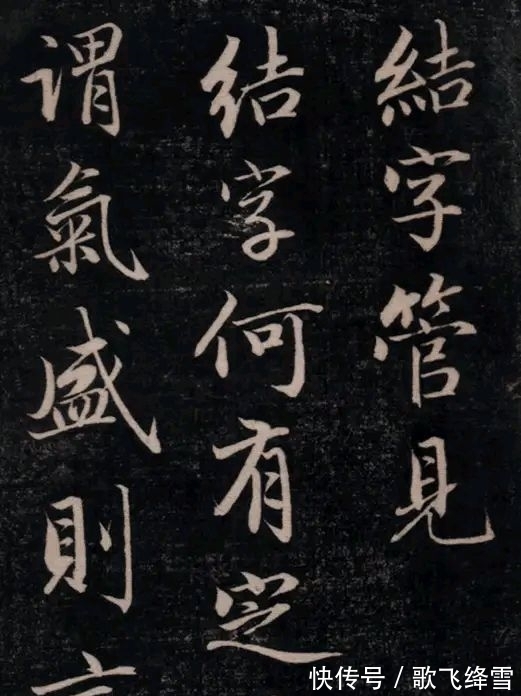 結字管見
結字何有定
謂氣盛則
快传号 / 歌飞绛雪